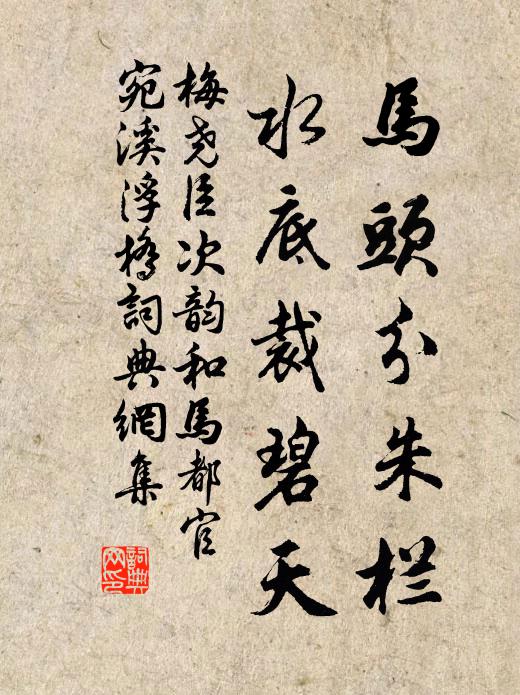 馬頭分朱栏
水底裁碧天
梅尧臣次韵和馬都官
宛溪浮橋詞典網集
詞典網印